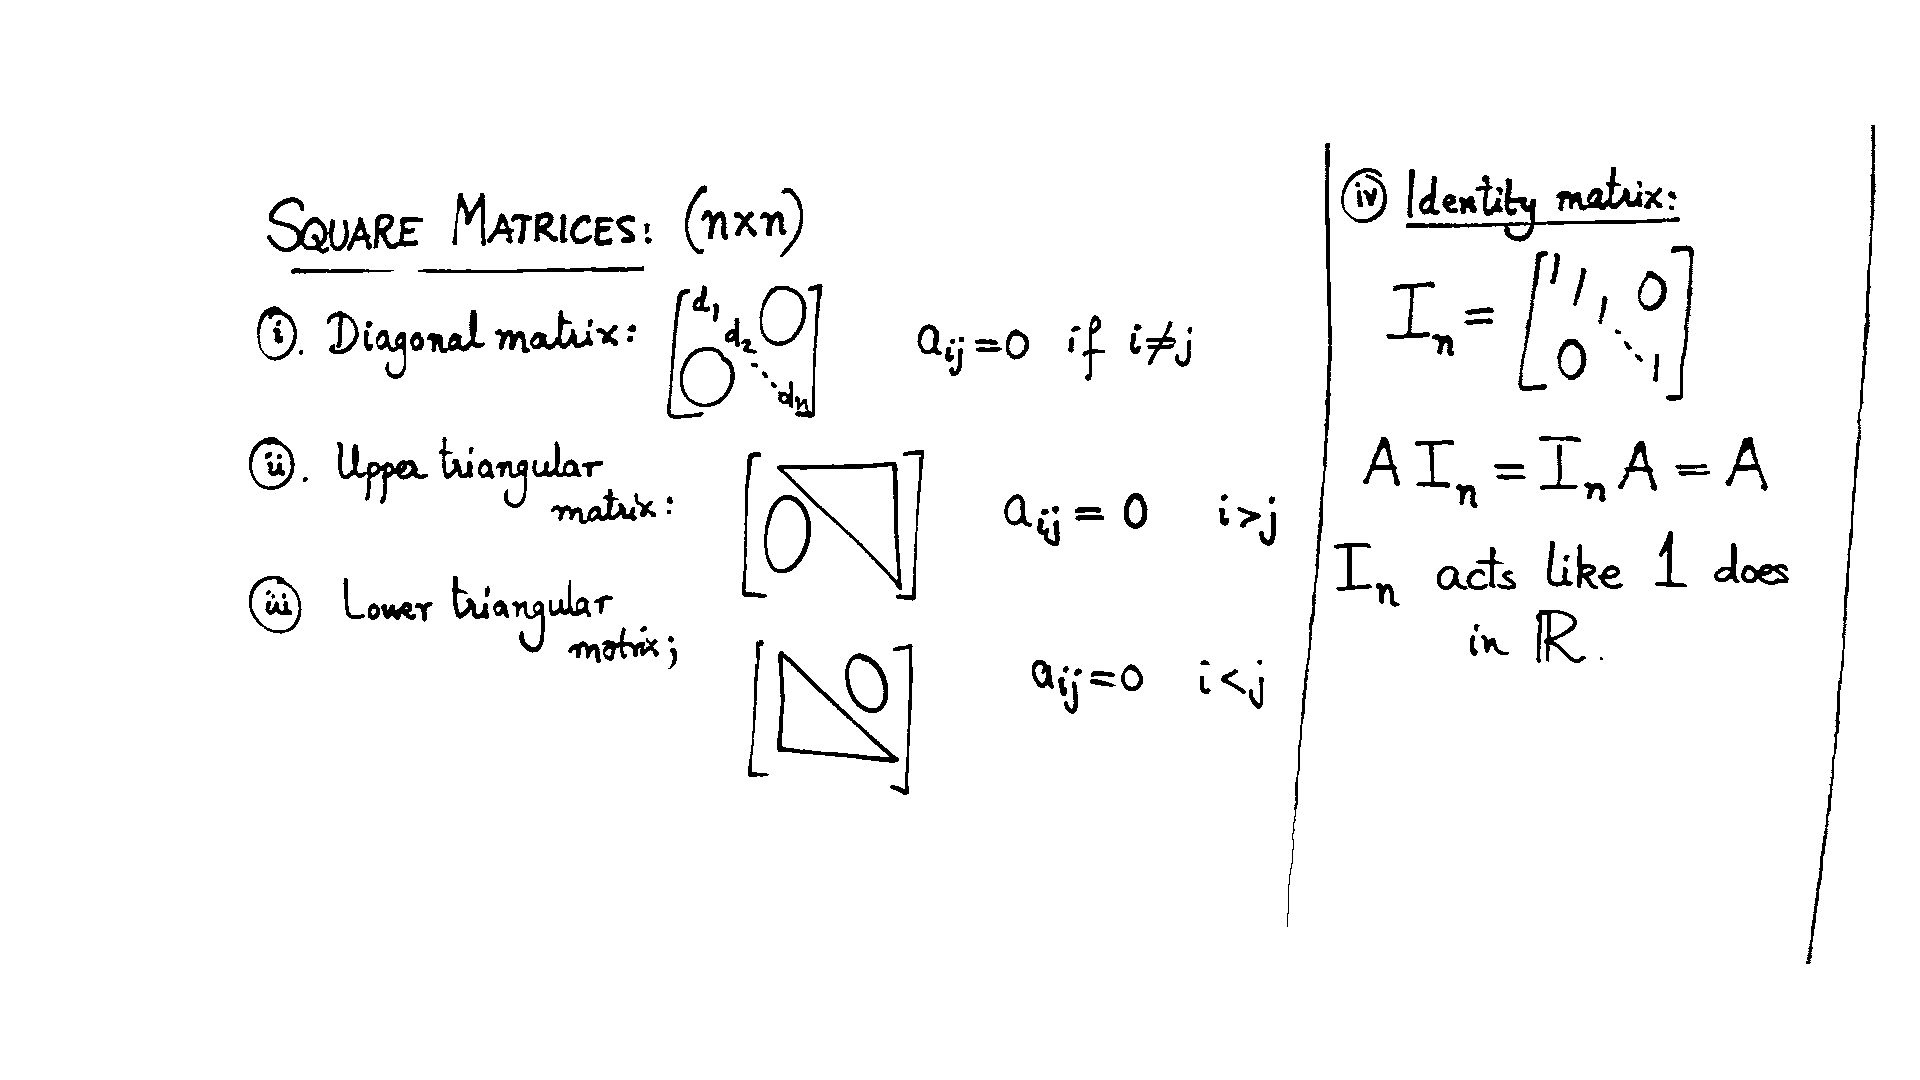 SQUARE MATRICES: (n×n)
i. Diagonal matrix: [d₁ d₂ ⋱ dₙ 0 0] aᵢⱼ=0 if i≠j
ii. Upper triangular
matrix: [0] aᵢⱼ = 0 i>j
iii Lower triangular
matrix; [0] aᵢⱼ=0 i<j
iv Identity matrix:
Iₙ = [1 1 1 ⋱ 1 0 0]
A Iₙ = Iₙ A = A
Iₙ acts like 1 does
in ℝ.